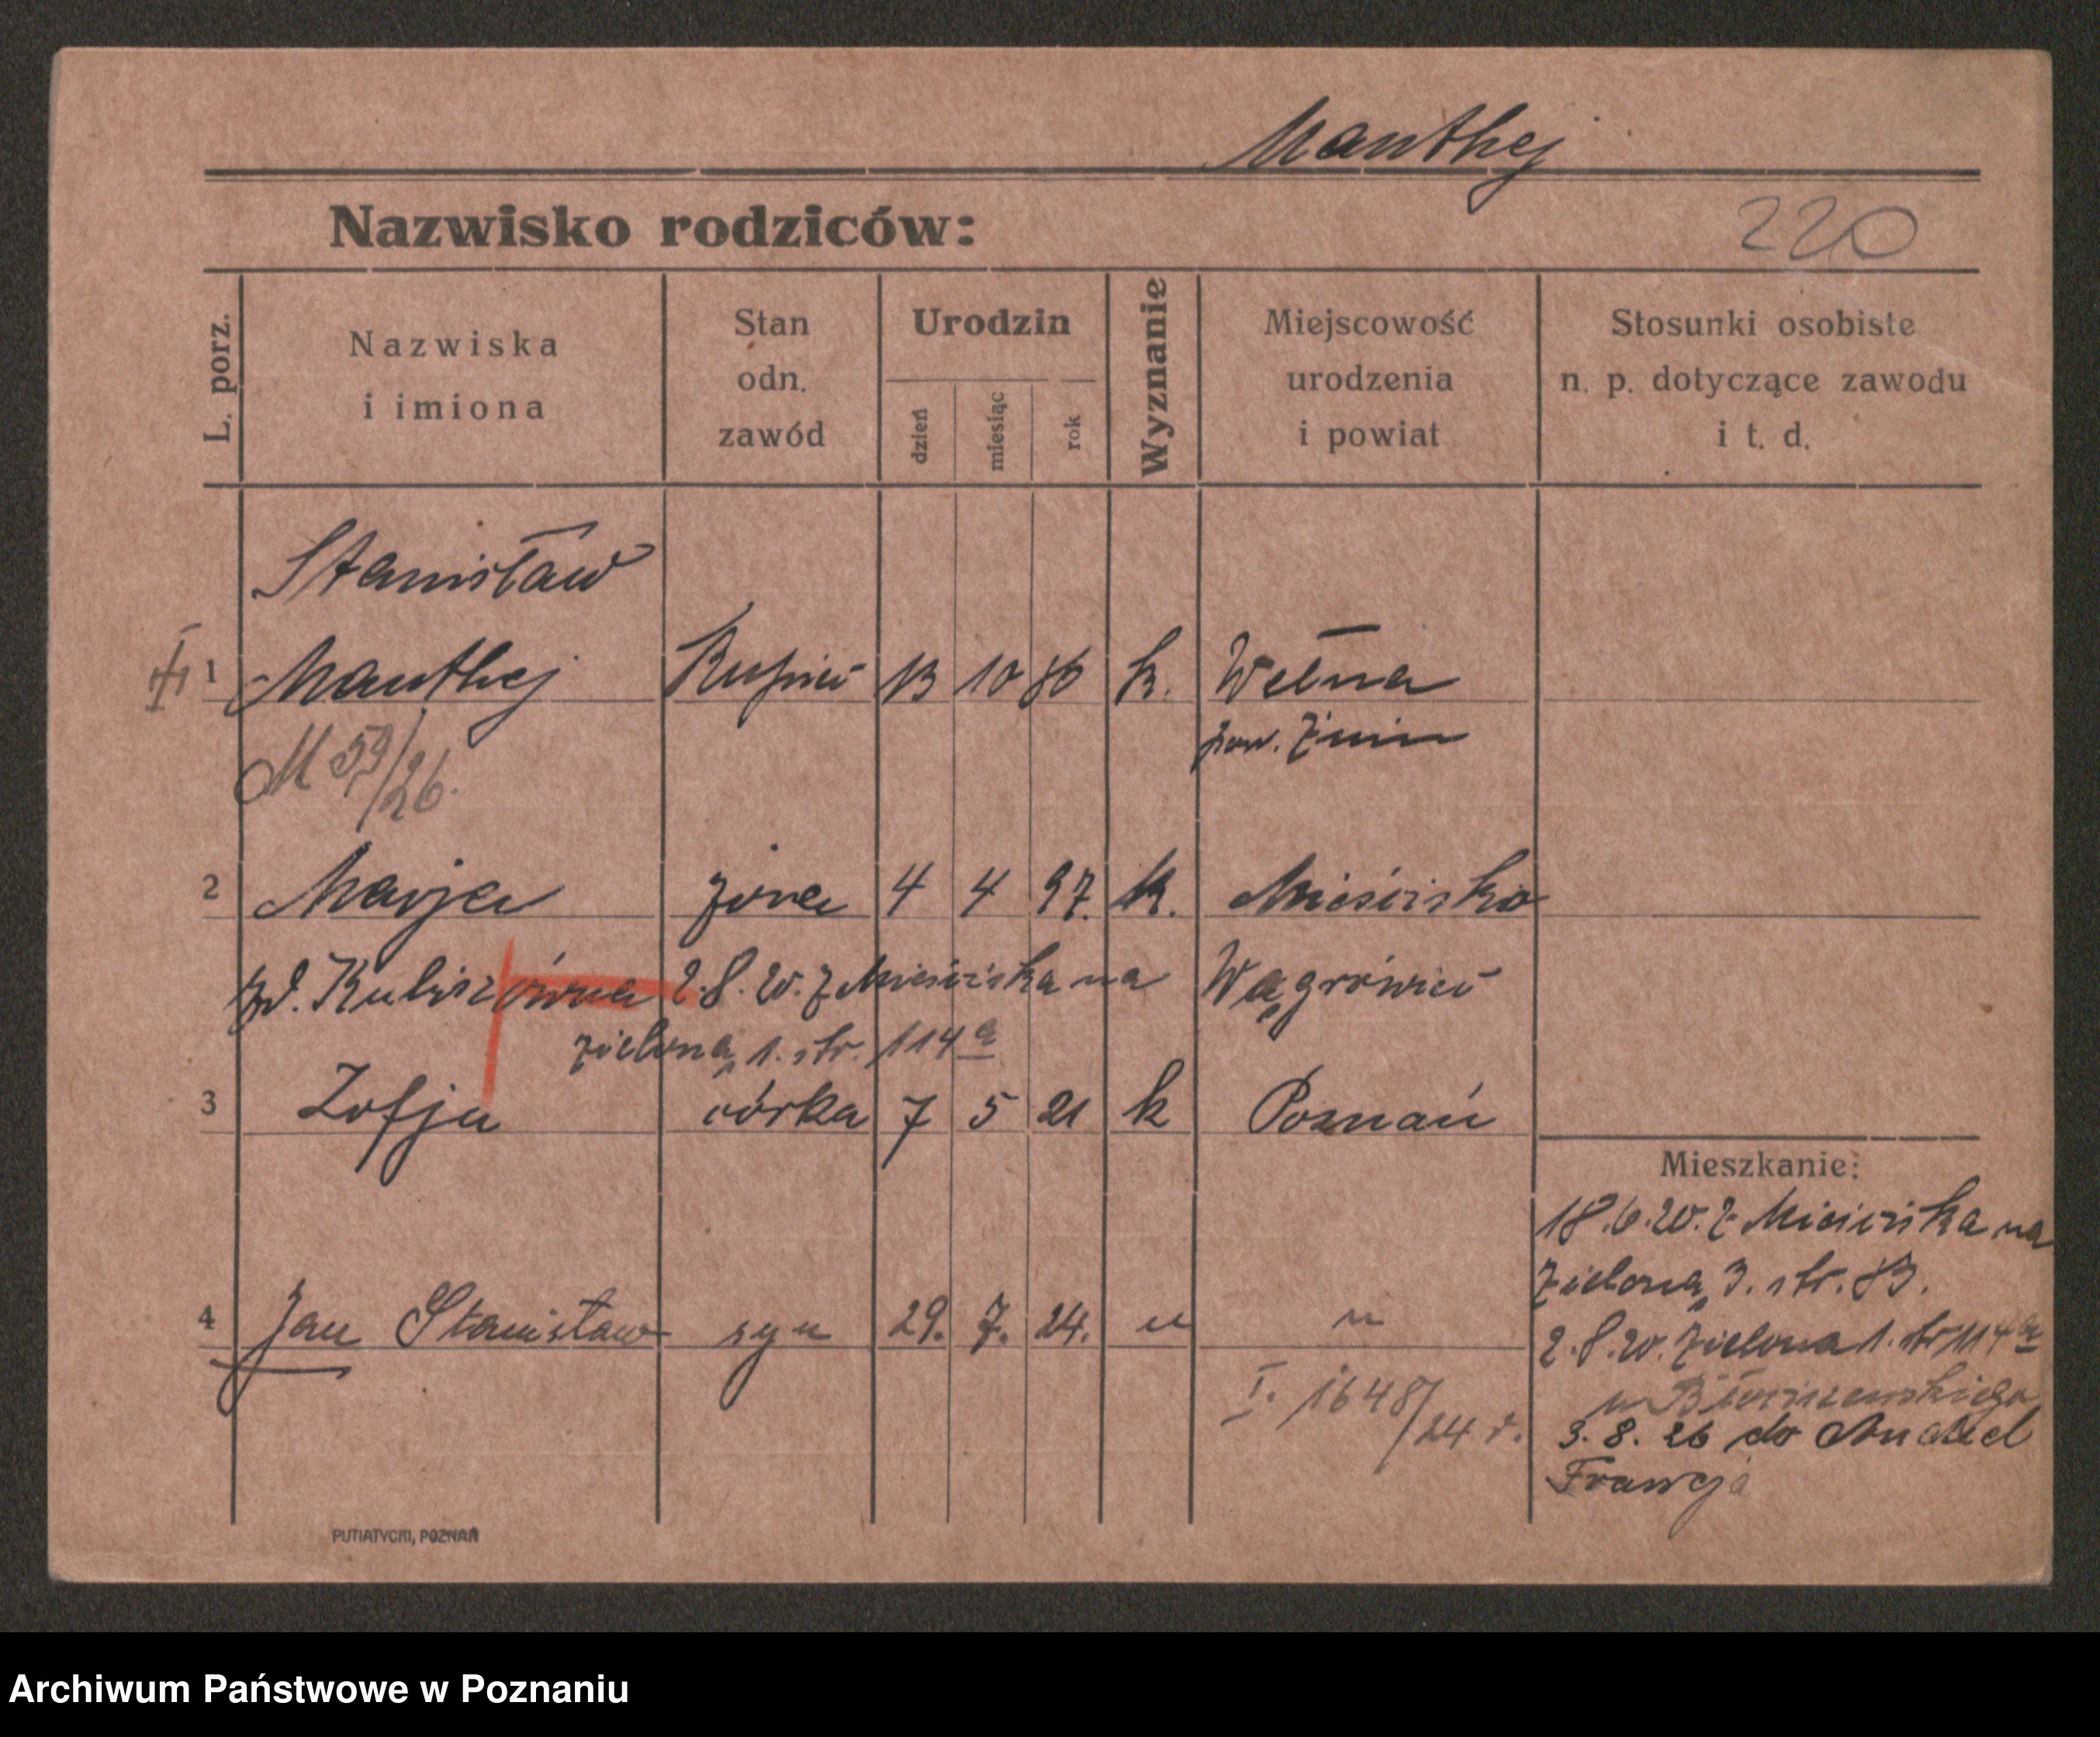 Manthej
Nazwisko rodziców:
220
L. porz.
Nazwiska
i imiona
Stan
odn.
zawód
Urodzin
dzień
miesiąc
rok
Wyznanie
Miejscowość
urodzenia
i powiat
Stosunki osobiste
n. p. dotyczące zawodu
i t. d.
Stanisław
1 Manthej Kupiec 13 10 86 k. Wełna
pow. Żnin
M 59/26.
2 Marja żona 4 4 97. k. Mieścisko
zd. Kubiszówna 2.8.20. z Mieściska na Wągrówiec
zieloną 1. str. 114a
3 Zofja córka 7 5 21 k Poznań
Mieszkanie:
18.6.20. z Mieściska na
Zieloną 3. str. 83.
4 Jan Stanisław syn 29. 7. 24. " "
2.8.20. Zielona 1. str 114a
I. 1648/24 r.
u
3. 8. 26 do
Francja
PUTIATYCKI, POZNAŃ
Archiwum Państwowe w Poznaniu